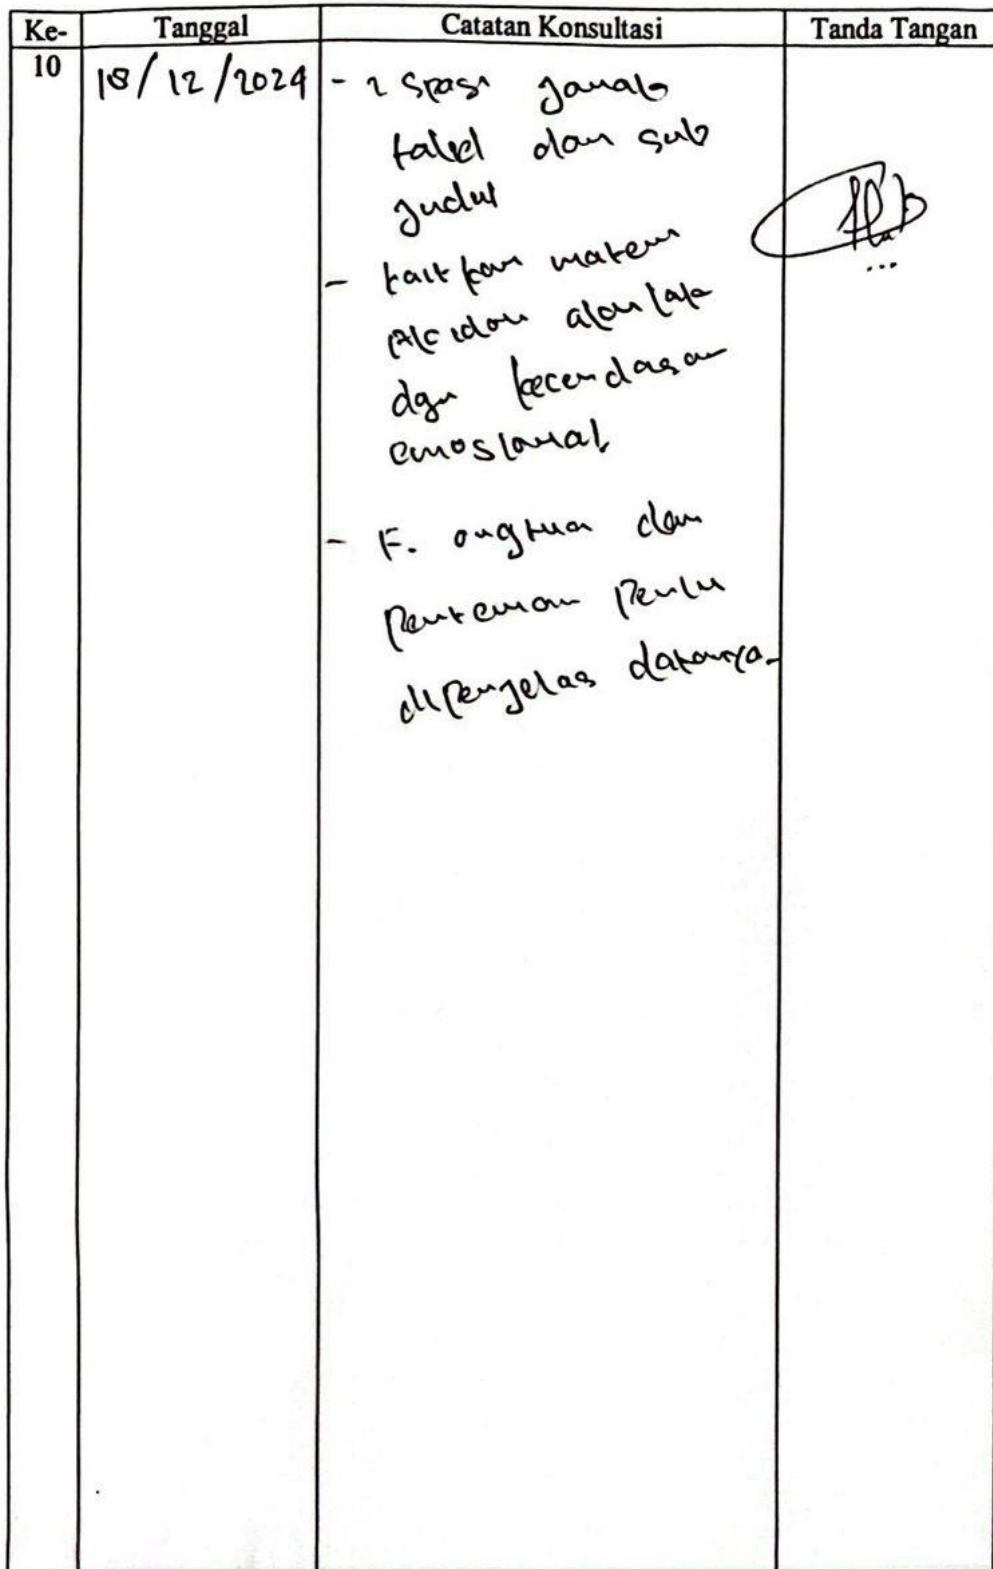 Ke- Tanggal Catatan Konsultasi Tanda Tangan
10 18/12/2024 - 2 spasi jarak
tabel dan sub
judul
- kaitkan materi
akidah akhlak
dgn kecerdasan
emosional
- F. orgtua dan
pertemanan perlu
diperjelas datanya.